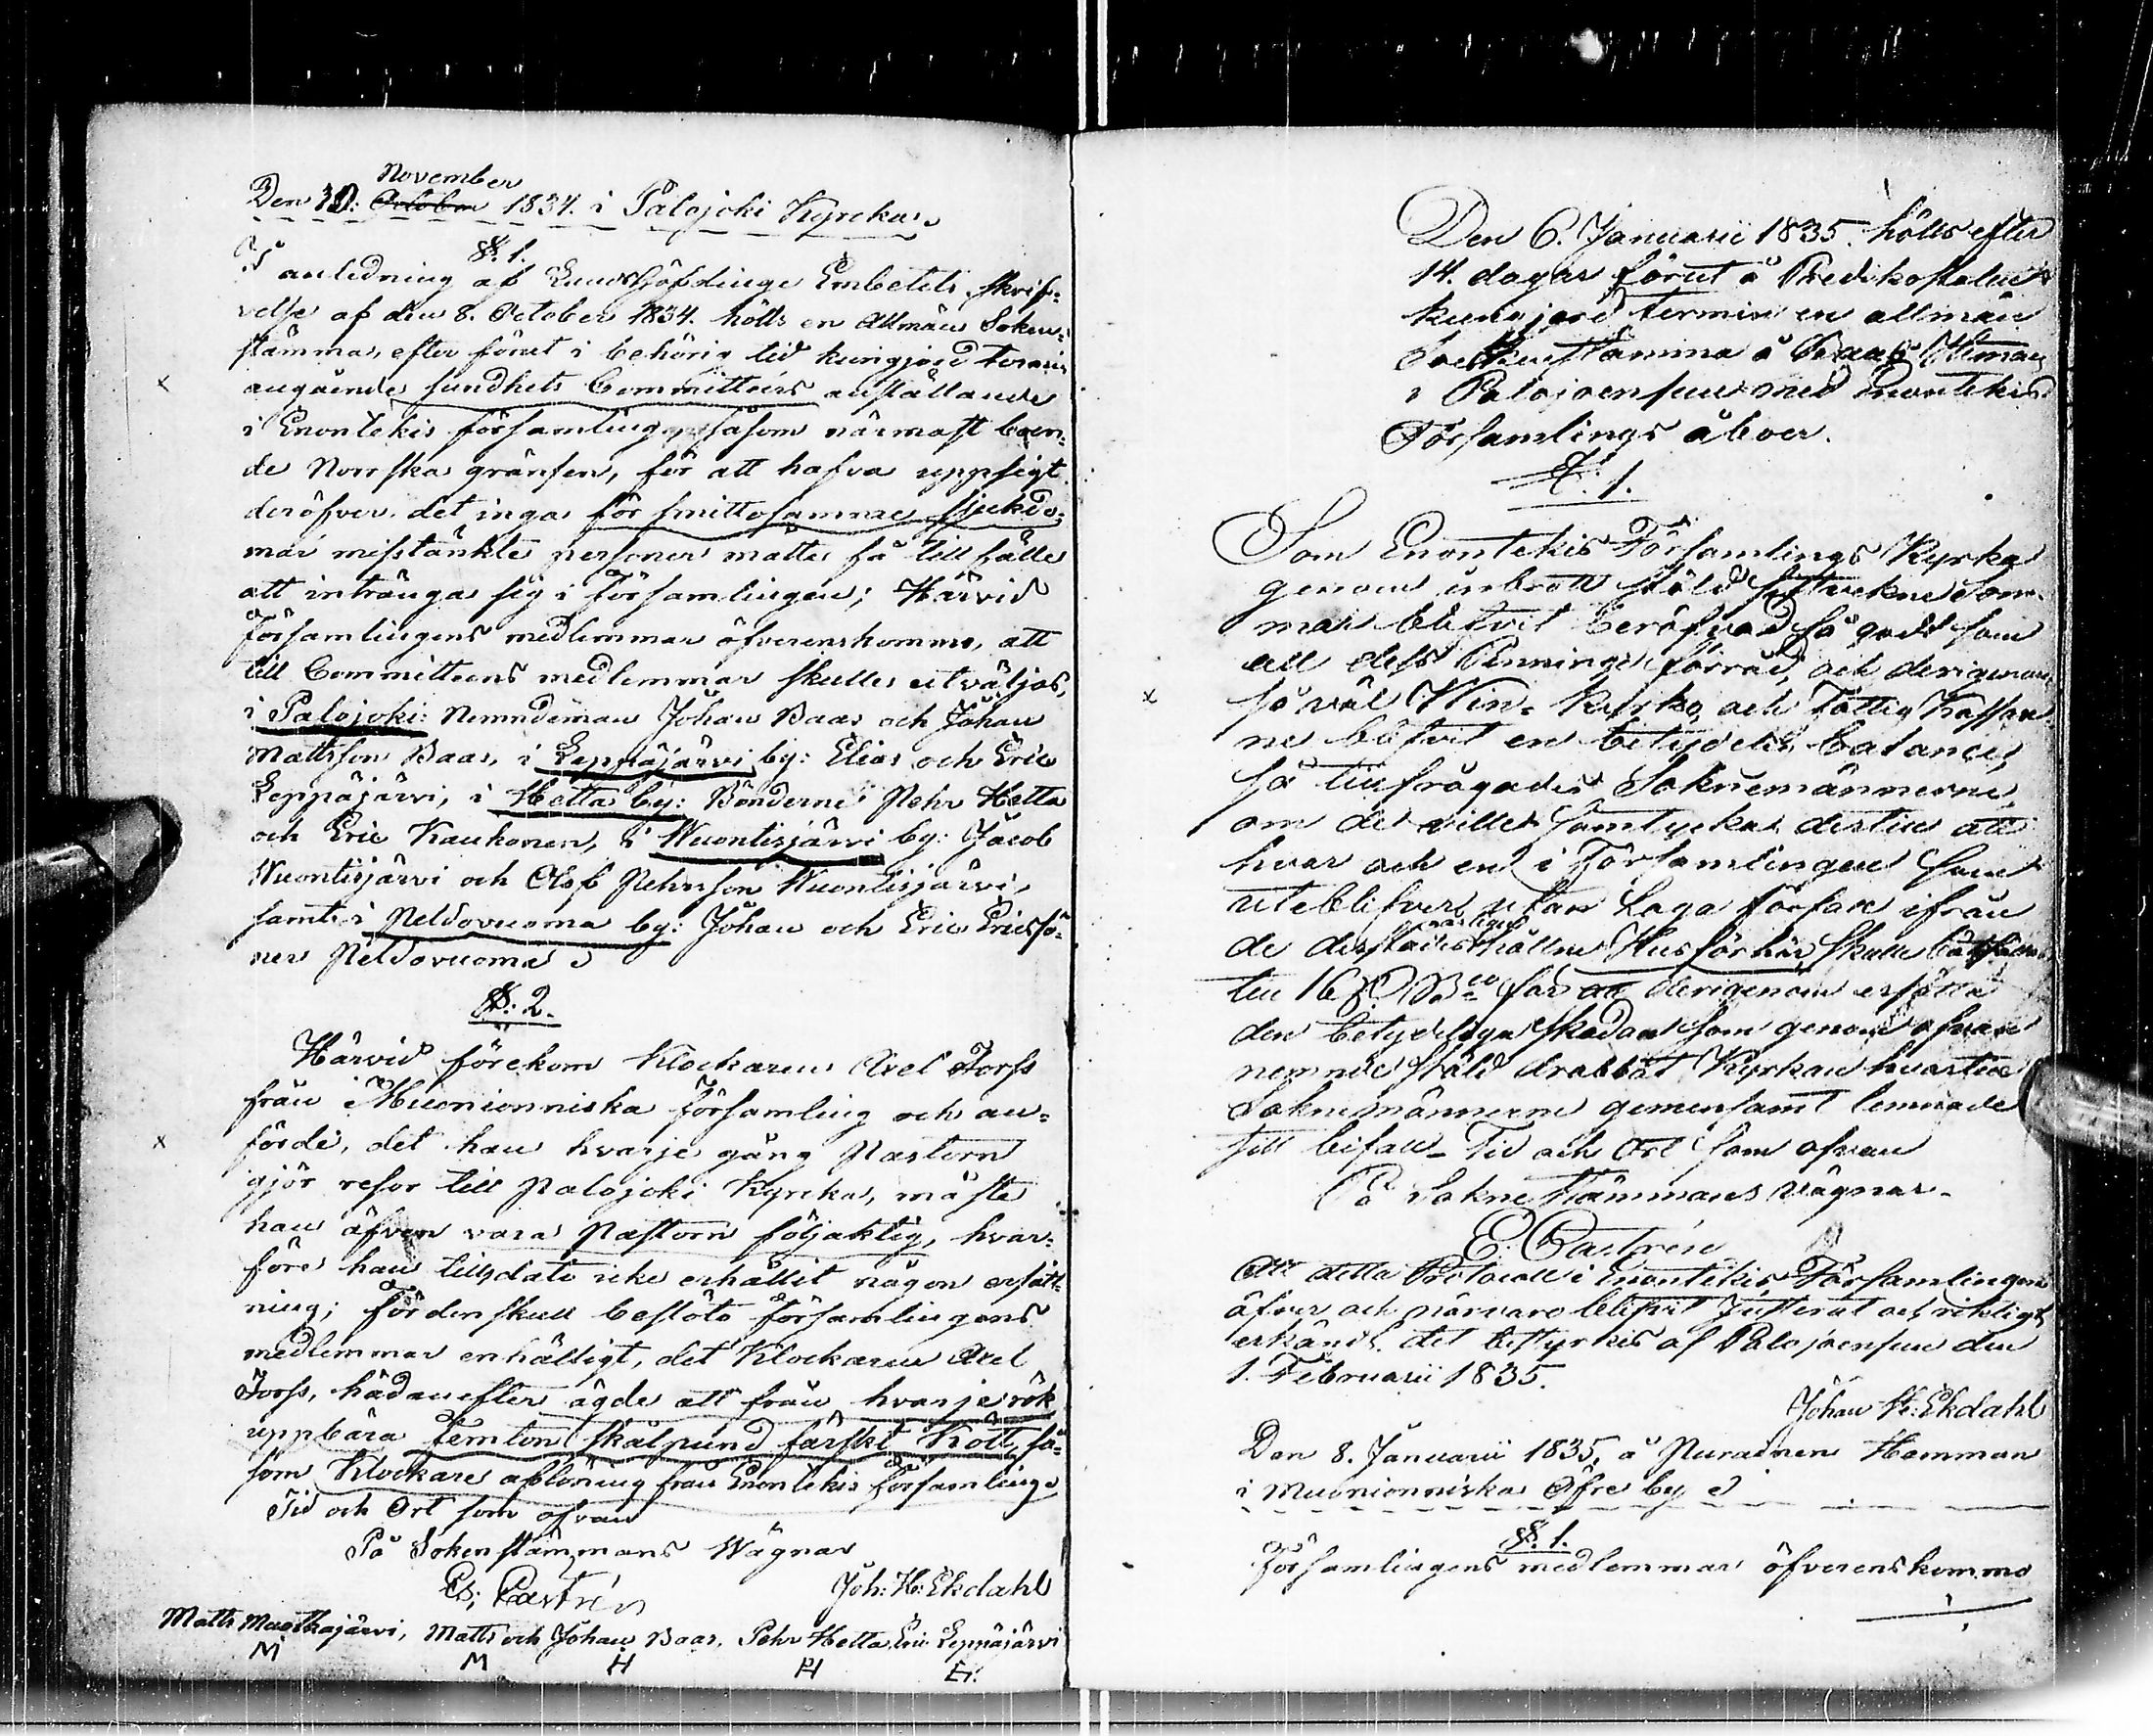 November
Den 30: October 1834. i Palojoki Kyrcka.
§. 1.
I anledning af Landshöfdinge Embetets skrif-
velse af den 8. October 1834. hölts en allmän Sokne-
stämma, efter förut i behörig tid kungjord termin
angående sundhets Committéers anställande
i Enontekis församling, såsom närmast boen-
de Norrska gränsen, för att hafva uppsigt
deröfver, det inga för smittosamma sjukdo-
mar misstänkte personer måtte få tillfälle
att intränga sig i församlingen; Härvid
församlingens medlemmar öfverenskommo, att
till Committeens medlemmar skulle utväljas,
i Palojoki: Nemndeman Johan Baas och Johan
Mattsson Baas, i Leppäjärvi by: Elias och Eric
Leppäjärvi, i Hetta by: Bönderne Pehr Hetta
och Eric Kaukonen, i Wuontisjärvi by: Jacob
Wuontisjärvi och Olof Pehrsson Wuontisjärvi,
samt i Peldovuoma by: Johan och Eric Ericssö-
ner Peldovuoma
§: 2.
Härvid förekom Klockaren Axel Forss
från Muonionniska församling och an-
förde, det han hvarje gång Pastorn
gjör resor till Palojoki Kyrcka, måste
han äfven vara Pastorn följaktig, hvar-
före han tills dato icke erhållit någon ersätt-
ning; för den skull beslöto församlingens
medlemmar enhälligt, det Klockaren Axel
Forss, hädanefter ägde att från hvarje rök
uppbära femton skålpund färskt Kött, så-
som Klockare aflöning från Enontekis församling
Tid och Ort som ofvan
På Sokenstämmans Wägnar
E; Castrén Joh: H: Ekdahl
Matts Muotkajärvi, Matts och Johan Baas, Pehr Hetta, Eric Leppäjärvi
M M H PH EL
Den 6. Januarii 1835. hölts efter
14. dagar förut å Predikostolen
kungjord termin en allmän
Sockenstämma å Hemman
i Palojoensuu med Enontekis
Församlings åboer.
§. 1.
Som Enontekis Församlings Kyrka
genom inbrott stöld sistvekne Som-
mar blifvit beröfvad så godt som
all dess Penninge förråd, och derigenom
så väl Win- Kyrko och Fattig Kassor-
ne blifvit en betydelig balance,
så tillfrågades Soknemännerne
om de ville samtycka dertill att
hvar och en i Församlingen som
uteblifver utan Laga förfall ifrån
de derstädes årligen hållne Husförhör skulle
till 16 Sk. Bco för att derigenom ersätta
den betydeliga skadan som genom ofvan
nemnde stöld drabbat Kyrkan hvartill
Soknemännerne gemensamt lemnade
sitt bifall_ Tid och Ort som ofvan
På Sokne stämmans vägnar.
E: Castrén
Att detta Protocoll i Enontekis Församlingens
åhör och närvaro blifvit justerat och riktigt
erkändt, det bestyrkes af Palojoensuu den
1. Februarii 1835.
Johan H: Ekdahl
Den 8. Januarii 1835, å Purainen Hemman
i Muonionniska Öfre by
§. 1.
Församlingens medlemmar öfverenskommo